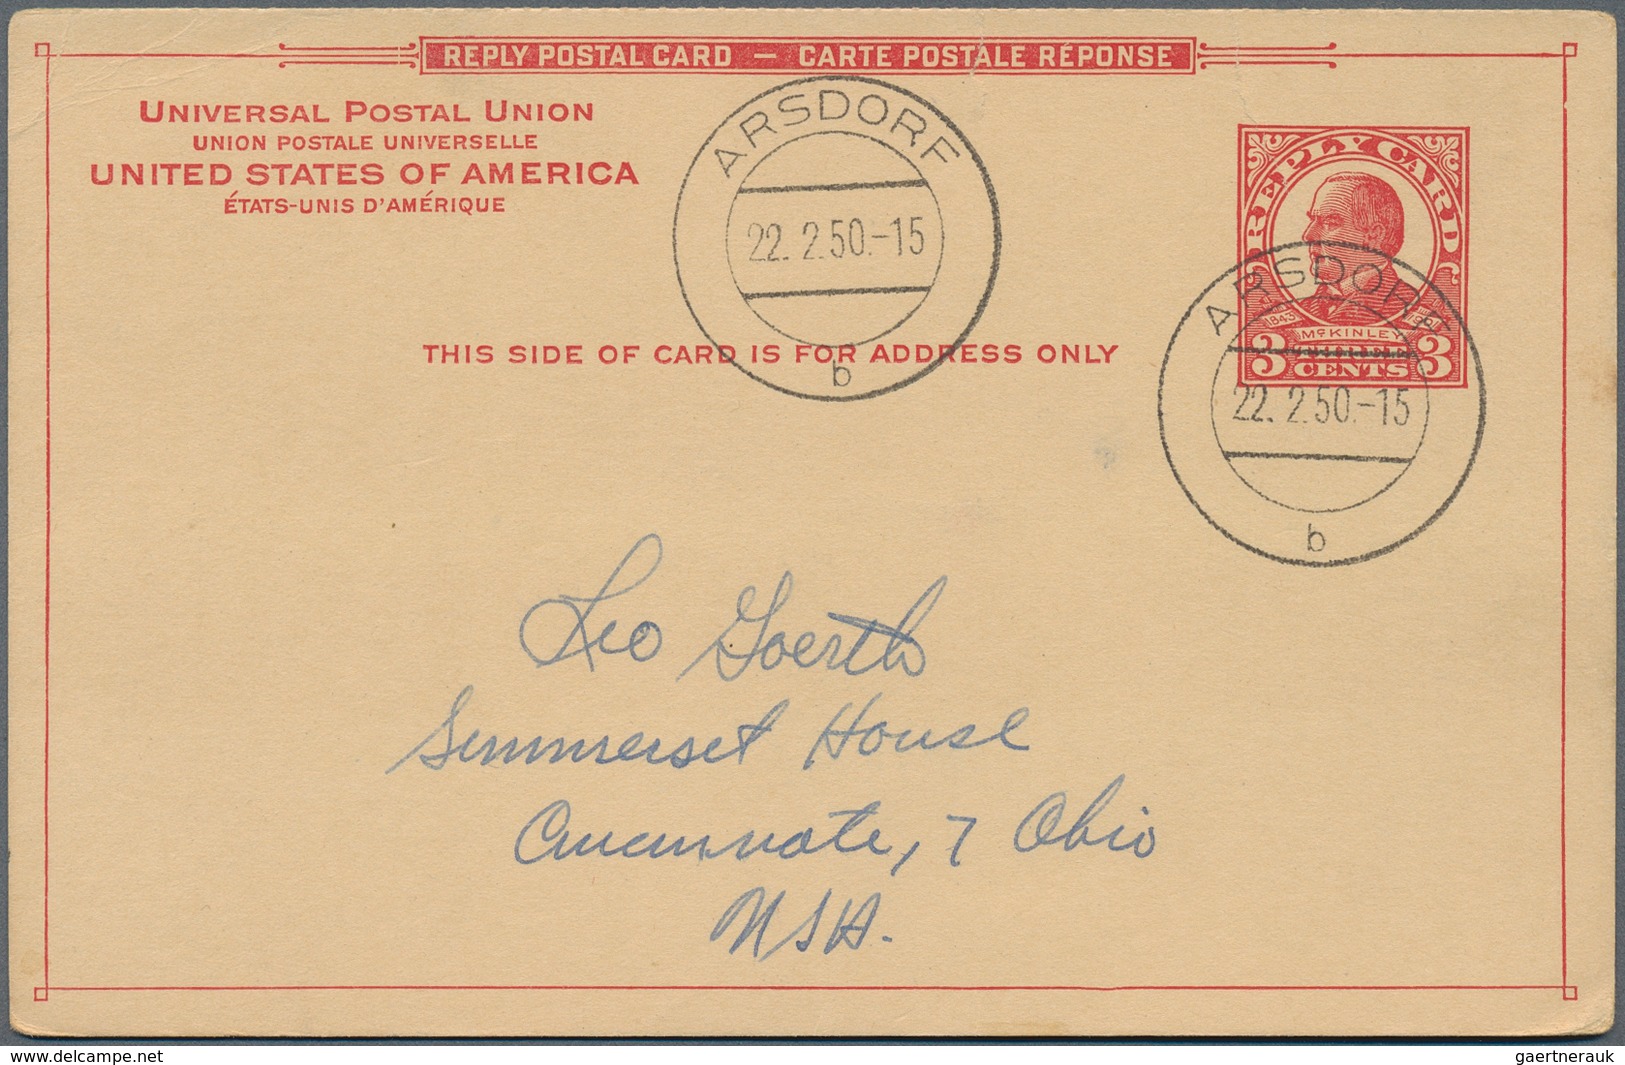 REPLY POSTAL CARD — CARTE POSTALE RÉPONSE
UNIVERSAL POSTAL UNION
UNION POSTALE UNIVERSELLE
UNITED STATES OF AMERICA
ÉTATS-UNIS D'AMÉRIQUE
ARSDORF
22. 2.50.-15
b
REPLY CARD
1843 1901
McKINLEY
3 CENTS 3
ARSDORF
22. 2.50.-15
b
THIS SIDE OF CARD IS FOR ADDRESS ONLY
Leo Goerth
Summerset House
Cincinnate, 7 Ohio
USA.
www.delcampe.net
gaertnerauk